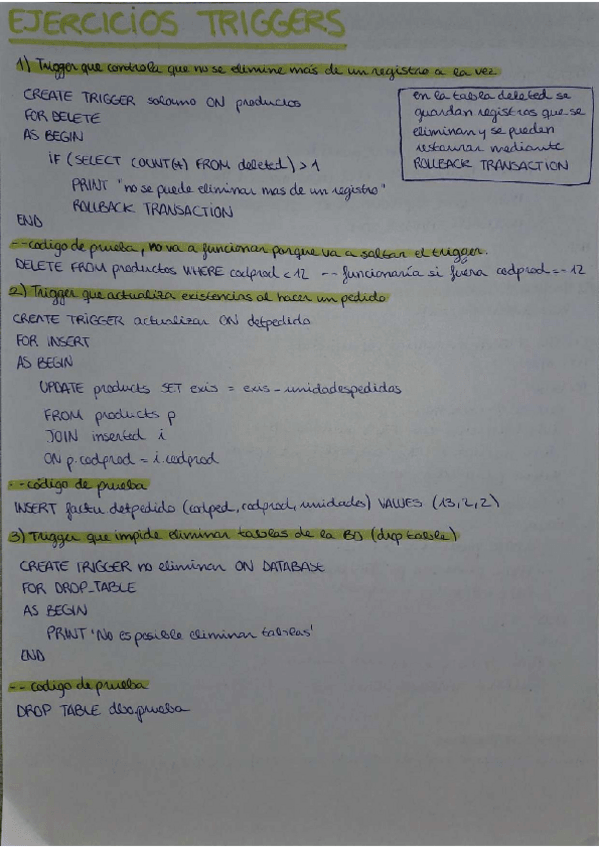 EJERCICIOS TRIGGERS
1) Trigger que controla que no se elimine más de un registro a la vez
CREATE TRIGGER solouno ON productos
FOR DELETE
AS BEGIN
IF (SELECT COUNT(*) FROM deleted) > 1
PRINT "no se puede eliminar mas de un registro"
ROLLBACK TRANSACTION
END
en la tabla deleted se
guardan registros que se
eliminan y se pueden
restaurar mediante
ROLLBACK TRANSACTION
--codigo de prueba, no va a funcionar porque va a saltar el trigger.
DELETE FROM productos WHERE codprod < 12 -- funcionaría si fuera codprod = 12
2) Trigger que actualiza existencias al hacer un pedido
CREATE TRIGGER actualizar ON detpedido
FOR INSERT
AS BEGIN
UPDATE products SET exis = exis - unidadespedidas
FROM products p
JOIN inserted i
ON p.codprod = i.codprod
--código de prueba
INSERT factu detpedido (codped, codprod, unidades) VALUES (13, 2, 2)
3) Trigger que impide eliminar tablas de la BD (drop table)
CREATE TRIGGER no eliminar ON DATABASE
FOR DROP_TABLE
AS BEGIN
PRINT 'No es posible eliminar tablas'
END
-- codigo de prueba
DROP TABLE dbo.prueba